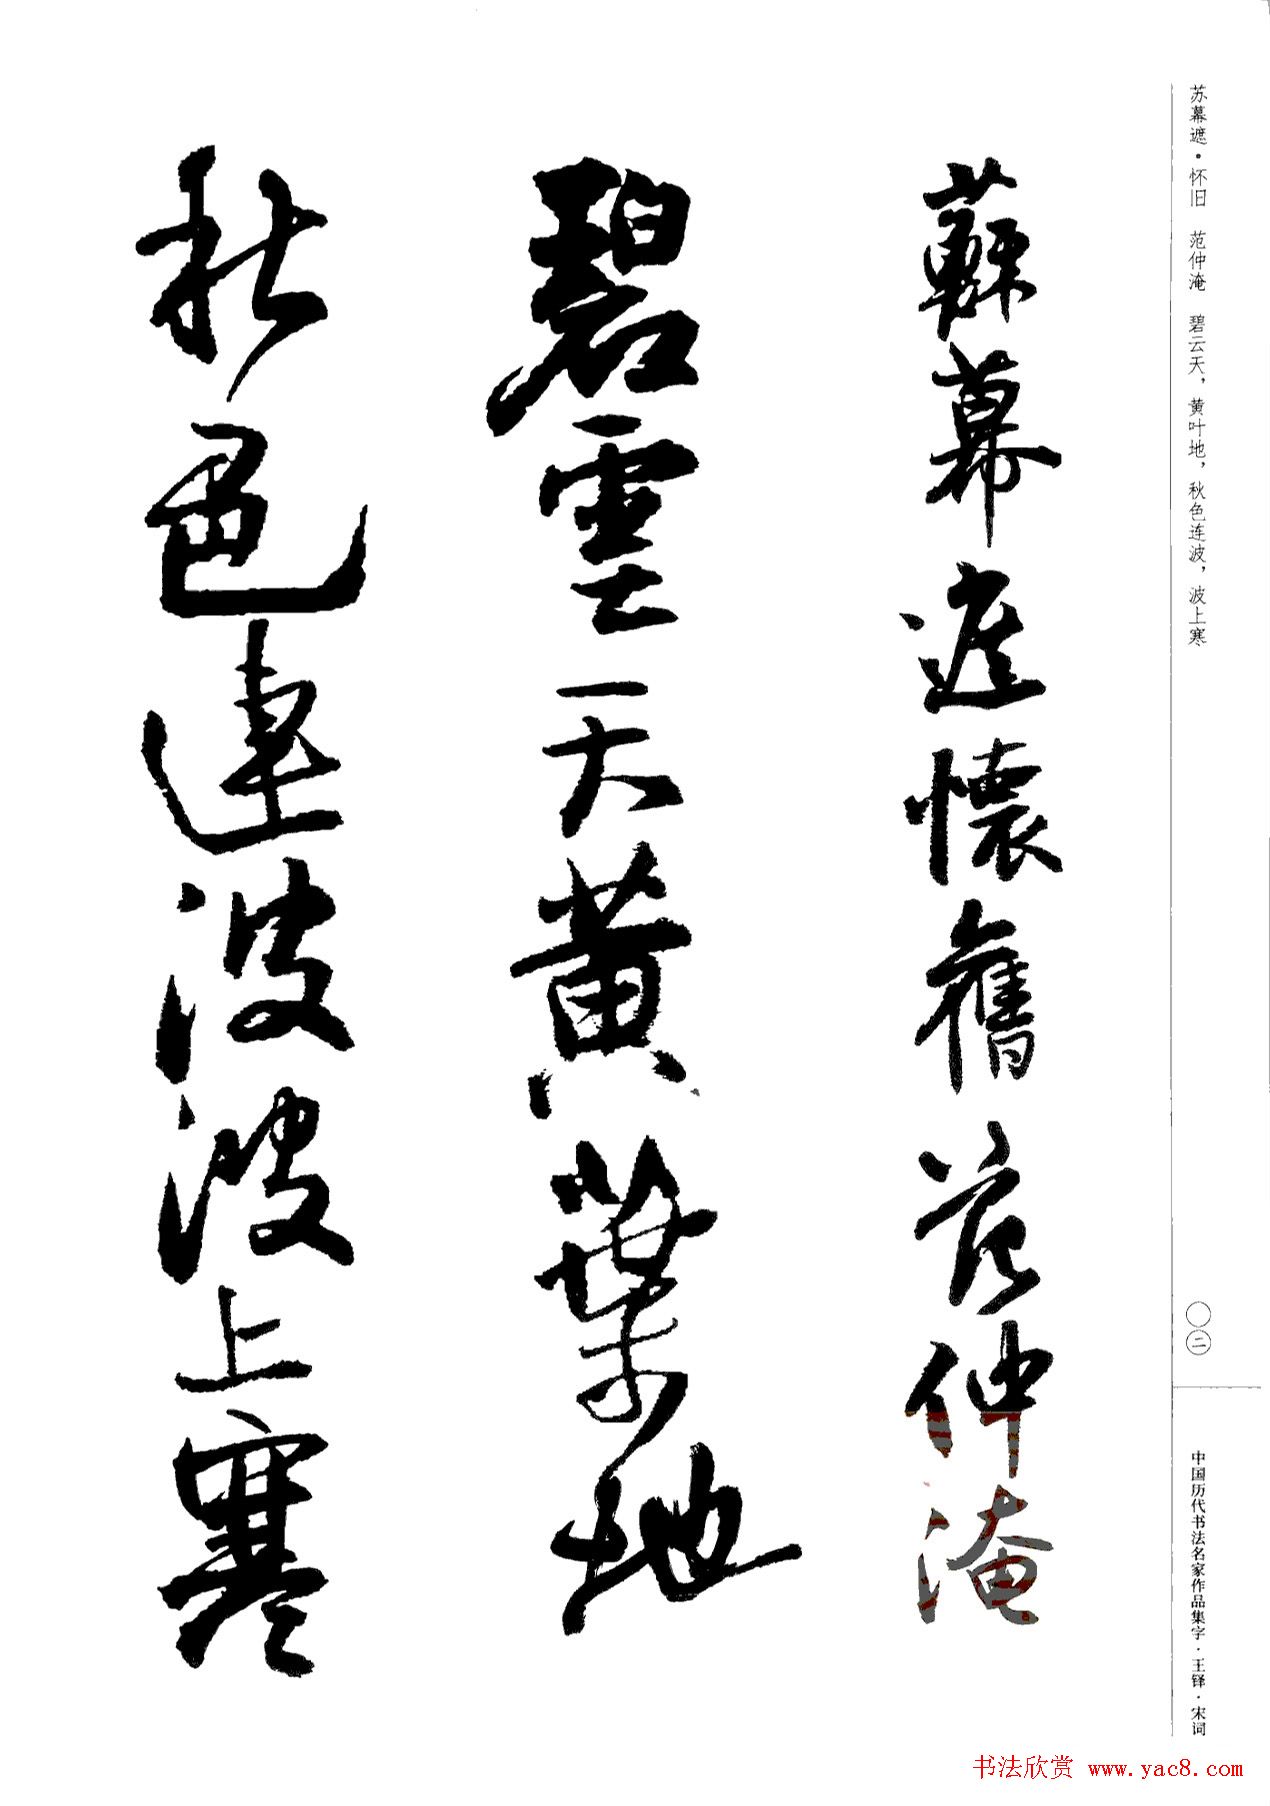 苏幕遮·怀旧　范仲淹　碧云天，黄叶地，秋色连波，波上寒
蘇幕遮懷舊范仲淹
碧雲天黄葉地
秋色連波波上寒
〇二
中国历代书法名家作品集字·王铎·宋词
书法欣赏 www.yac8.com